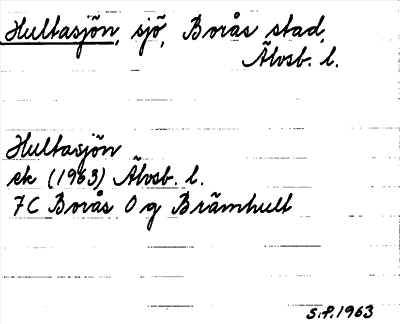 Hultasjön, sjö, Borås stad,
Älvsb. l.
Hultasjön
ek (1963) Älvsb. l.
7C Borås O g Brämhult
S.P. 1963